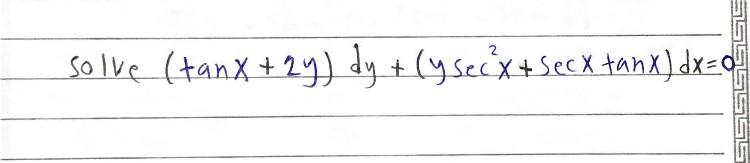 solve (tanx + 2y) dy + (y sec²x + secx tanx) dx = 0